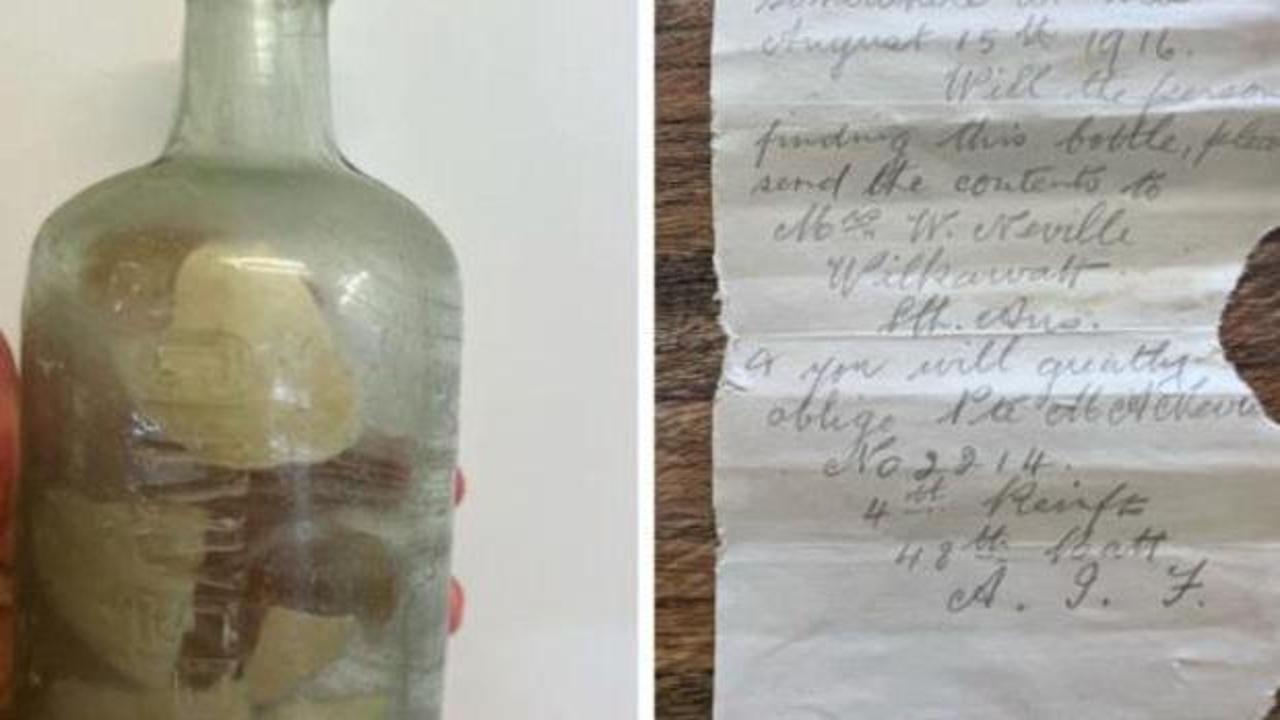 somewhere in
August 15th 1916.
Will the person
finding this bottle,
send the contents to
Mrs W. Neville
Wilkawatt
Sth. Aus.
& you will greatly
oblige Pte
No 2214.
4th Reinft
48th Batt
A. I. F.